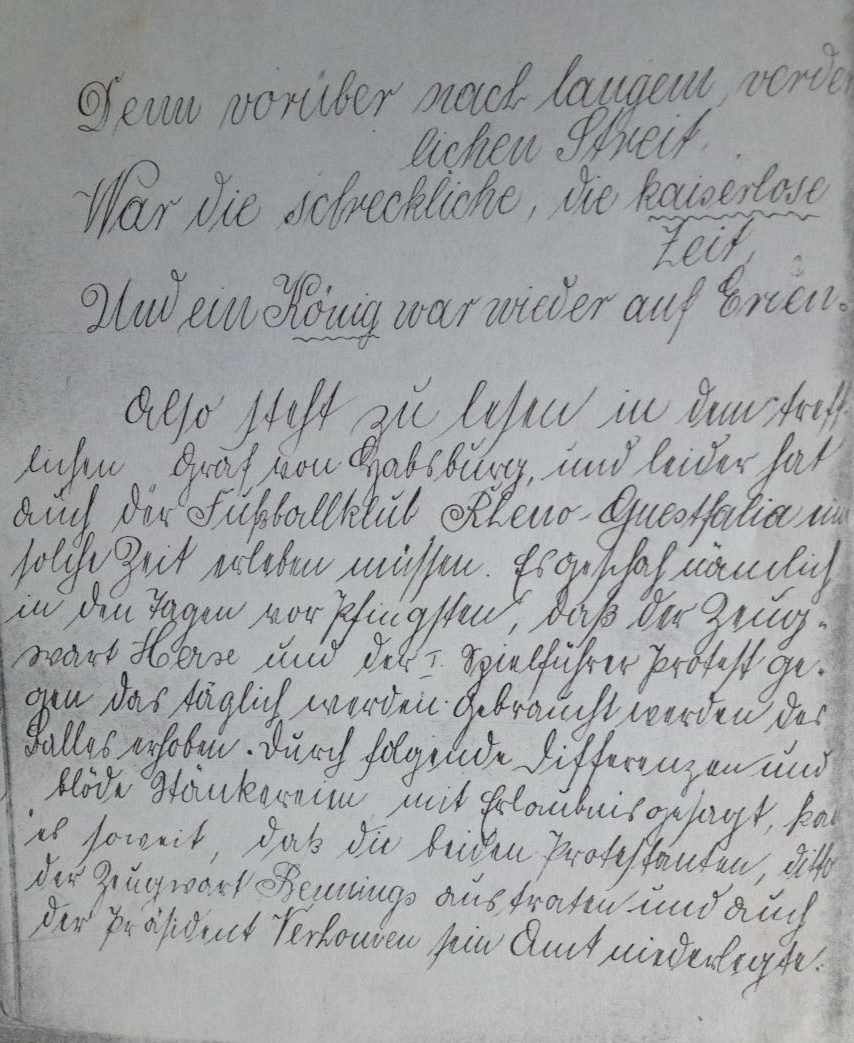 Denn vorüber nach langem verder
lichen Streit,
War die schreckliche, die kaiserlose
Zeit,
Und ein König war wieder auf Erden.
Also steht zu lesen in dem treff-
lichen Graf von Habsburg, und leider hat
auch der Fußballklub Rheno-Guestfalia eine
solche Zeit erleben müssen. Es geschah nämlich
in den Tagen vor Pfingsten, daß der Zeug-
wart und der I. Spielführer Protest ge-
gen das täglich werden gebraucht werden des
Balles erhoben. Durch folgende Differenzen und
blöde Stänkereien mit Erlaubnis gesagt, kam
es soweit, daß die beiden Protestanten, ditto
der Zeugwart Bennings austraten und auch
der Präsident sein Amt niederlegte.